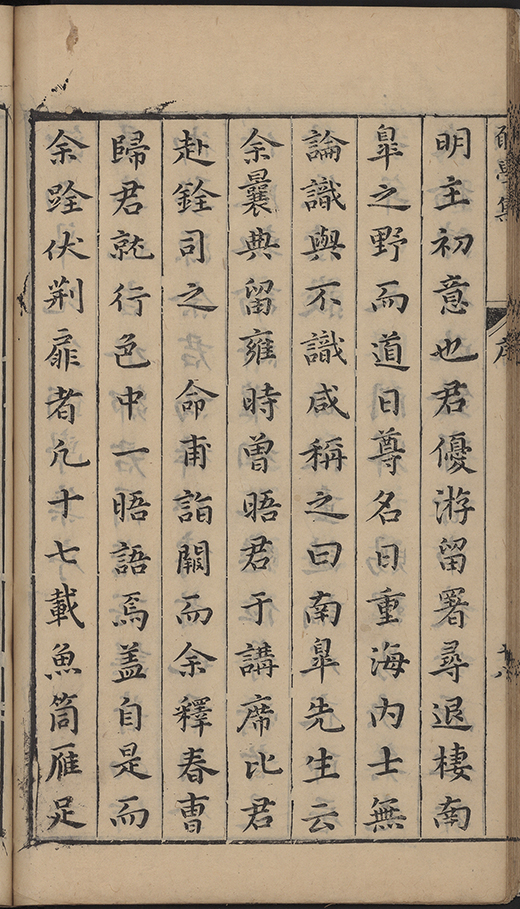 明主初意也君優游留署尋退棲南
臯之野而道日尊名日重海内士無
論識與不識咸稱之曰南臯先生云
余曩典留雍時曾晤君于講席比君
赴銓司之命甫詣闕而余釋春曹
歸君就行色中一晤語焉蓋自是而
余跧伏荆扉者凢十七載魚筒雁足